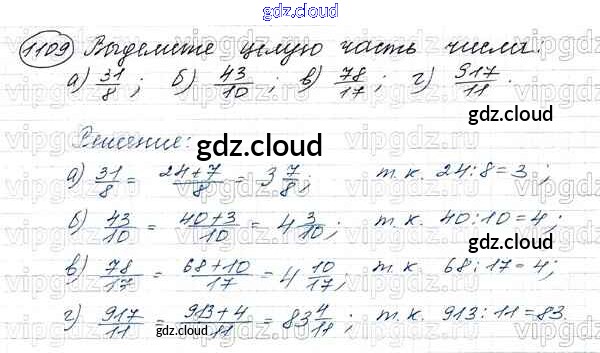 gdz.cloud
1109 Выделите целую часть числа:
а) 31/8; б) 43/10; в) 78/17; г) 917/11.
gdz.cloud
Решение:
gdz.cloud
а) 31/8 = 24+7/8 = 3 7/8; т.к. 24:8=3;
б) 43/10 = 40+3/10 = 4 3/10; т.к. 40:10=4;
gdz.cloud
в) 78/17 = 68+10/17 = 4 10/17; т.к. 68:17=4;
г) 917/11 = 913+4/11 = 83 4/11; т.к. 913:11=83.
gdz.cloud
gdz.cloud